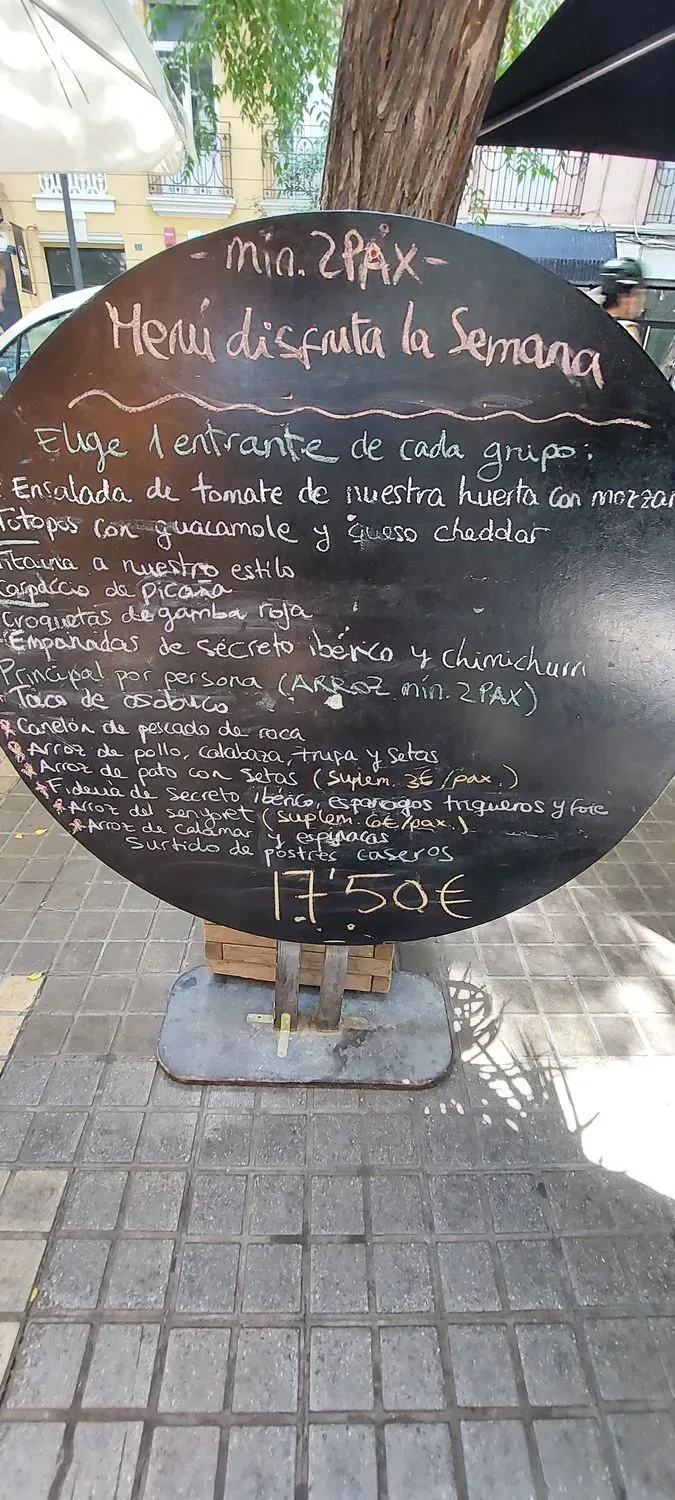 - Min. 2PAX -
Menú disfruta la Semana
Elige 1 entrante de cada grupo:
Ensalada de tomate de nuestra huerta con mozzar
Totopos con guacamole y queso cheddar
a nuestro estilo
Carpaccio de picaña
Croquetas de gamba roja
Empanadas de secreto ibérico y chimichurri
Principal por persona (ARROZ mín. 2PAX)
Taco de osobuco
Canelón de pescado de roca
Arroz de pollo, calabaza, trufa y setas
Arroz de pato con setas (suplem. 3€/pax.)
Fideuá de secreto ibérico, esparragos trigueros y foie
Arroz del senyoret (suplem. 6€/pax.)
Arroz de calamar y espinacas
Surtido de postres caseros
17'50€